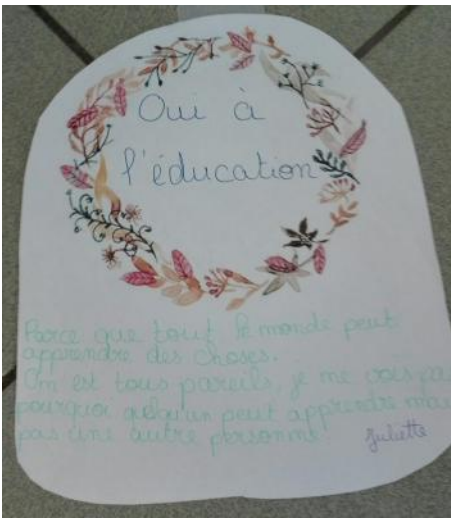 Oui à
l'éducation
Parce que tout le monde peut
apprendre des choses.
On est tous pareils, je me vois pa
pourquoi quelqu'un peut apprendre mai
pas une autre personne.
Juliette